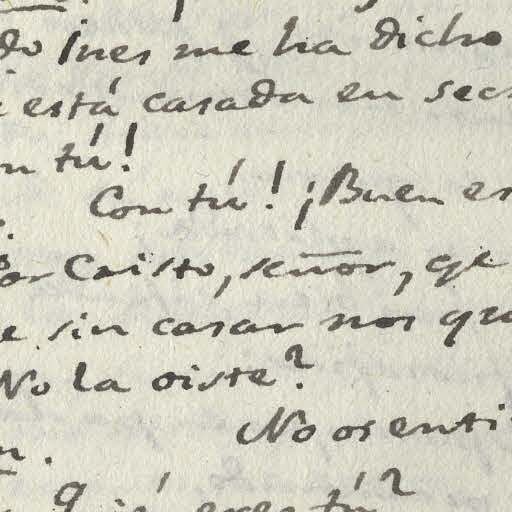 do Ines me ha dicho
está casada en sec
n tú!
Con tú! ¡Buen es
Por Cristo, señor, qe
e sin casar nos qu
No la oiste?
No os enti
n.